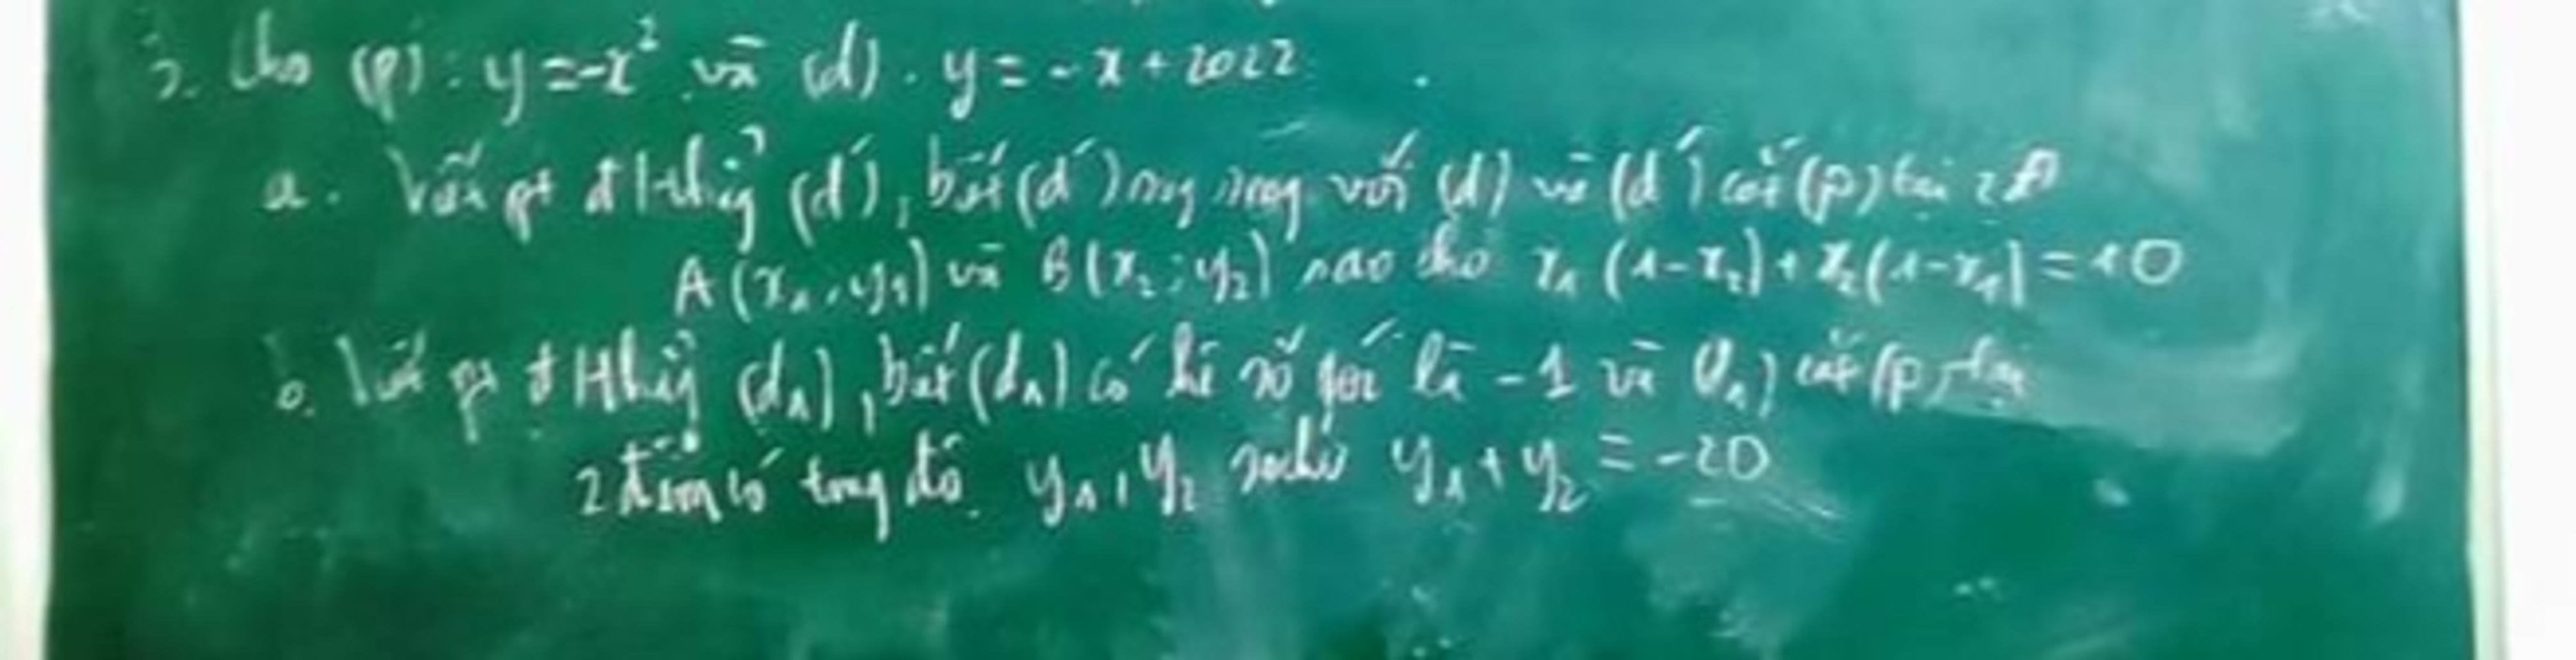 3. Cho (P) : y = -x² và (d) . y = -x + 2022
a. Viết pt đthẳng (d'), biết (d') song song với (d) và (d') cắt (P) tại 2 đ
A (x₁ ; y₁) và B (x₂ ; y₂) sao cho x₁ (1 - x₂) + x₂ (1 - x₁) = 10
b. Viết pt đthẳng (d₁), biết (d₁) có hệ số góc là -1 và (d₁) cắt (P) tại
2 điểm có tung độ y₁, y₂ sao cho y₁ + y₂ = -20